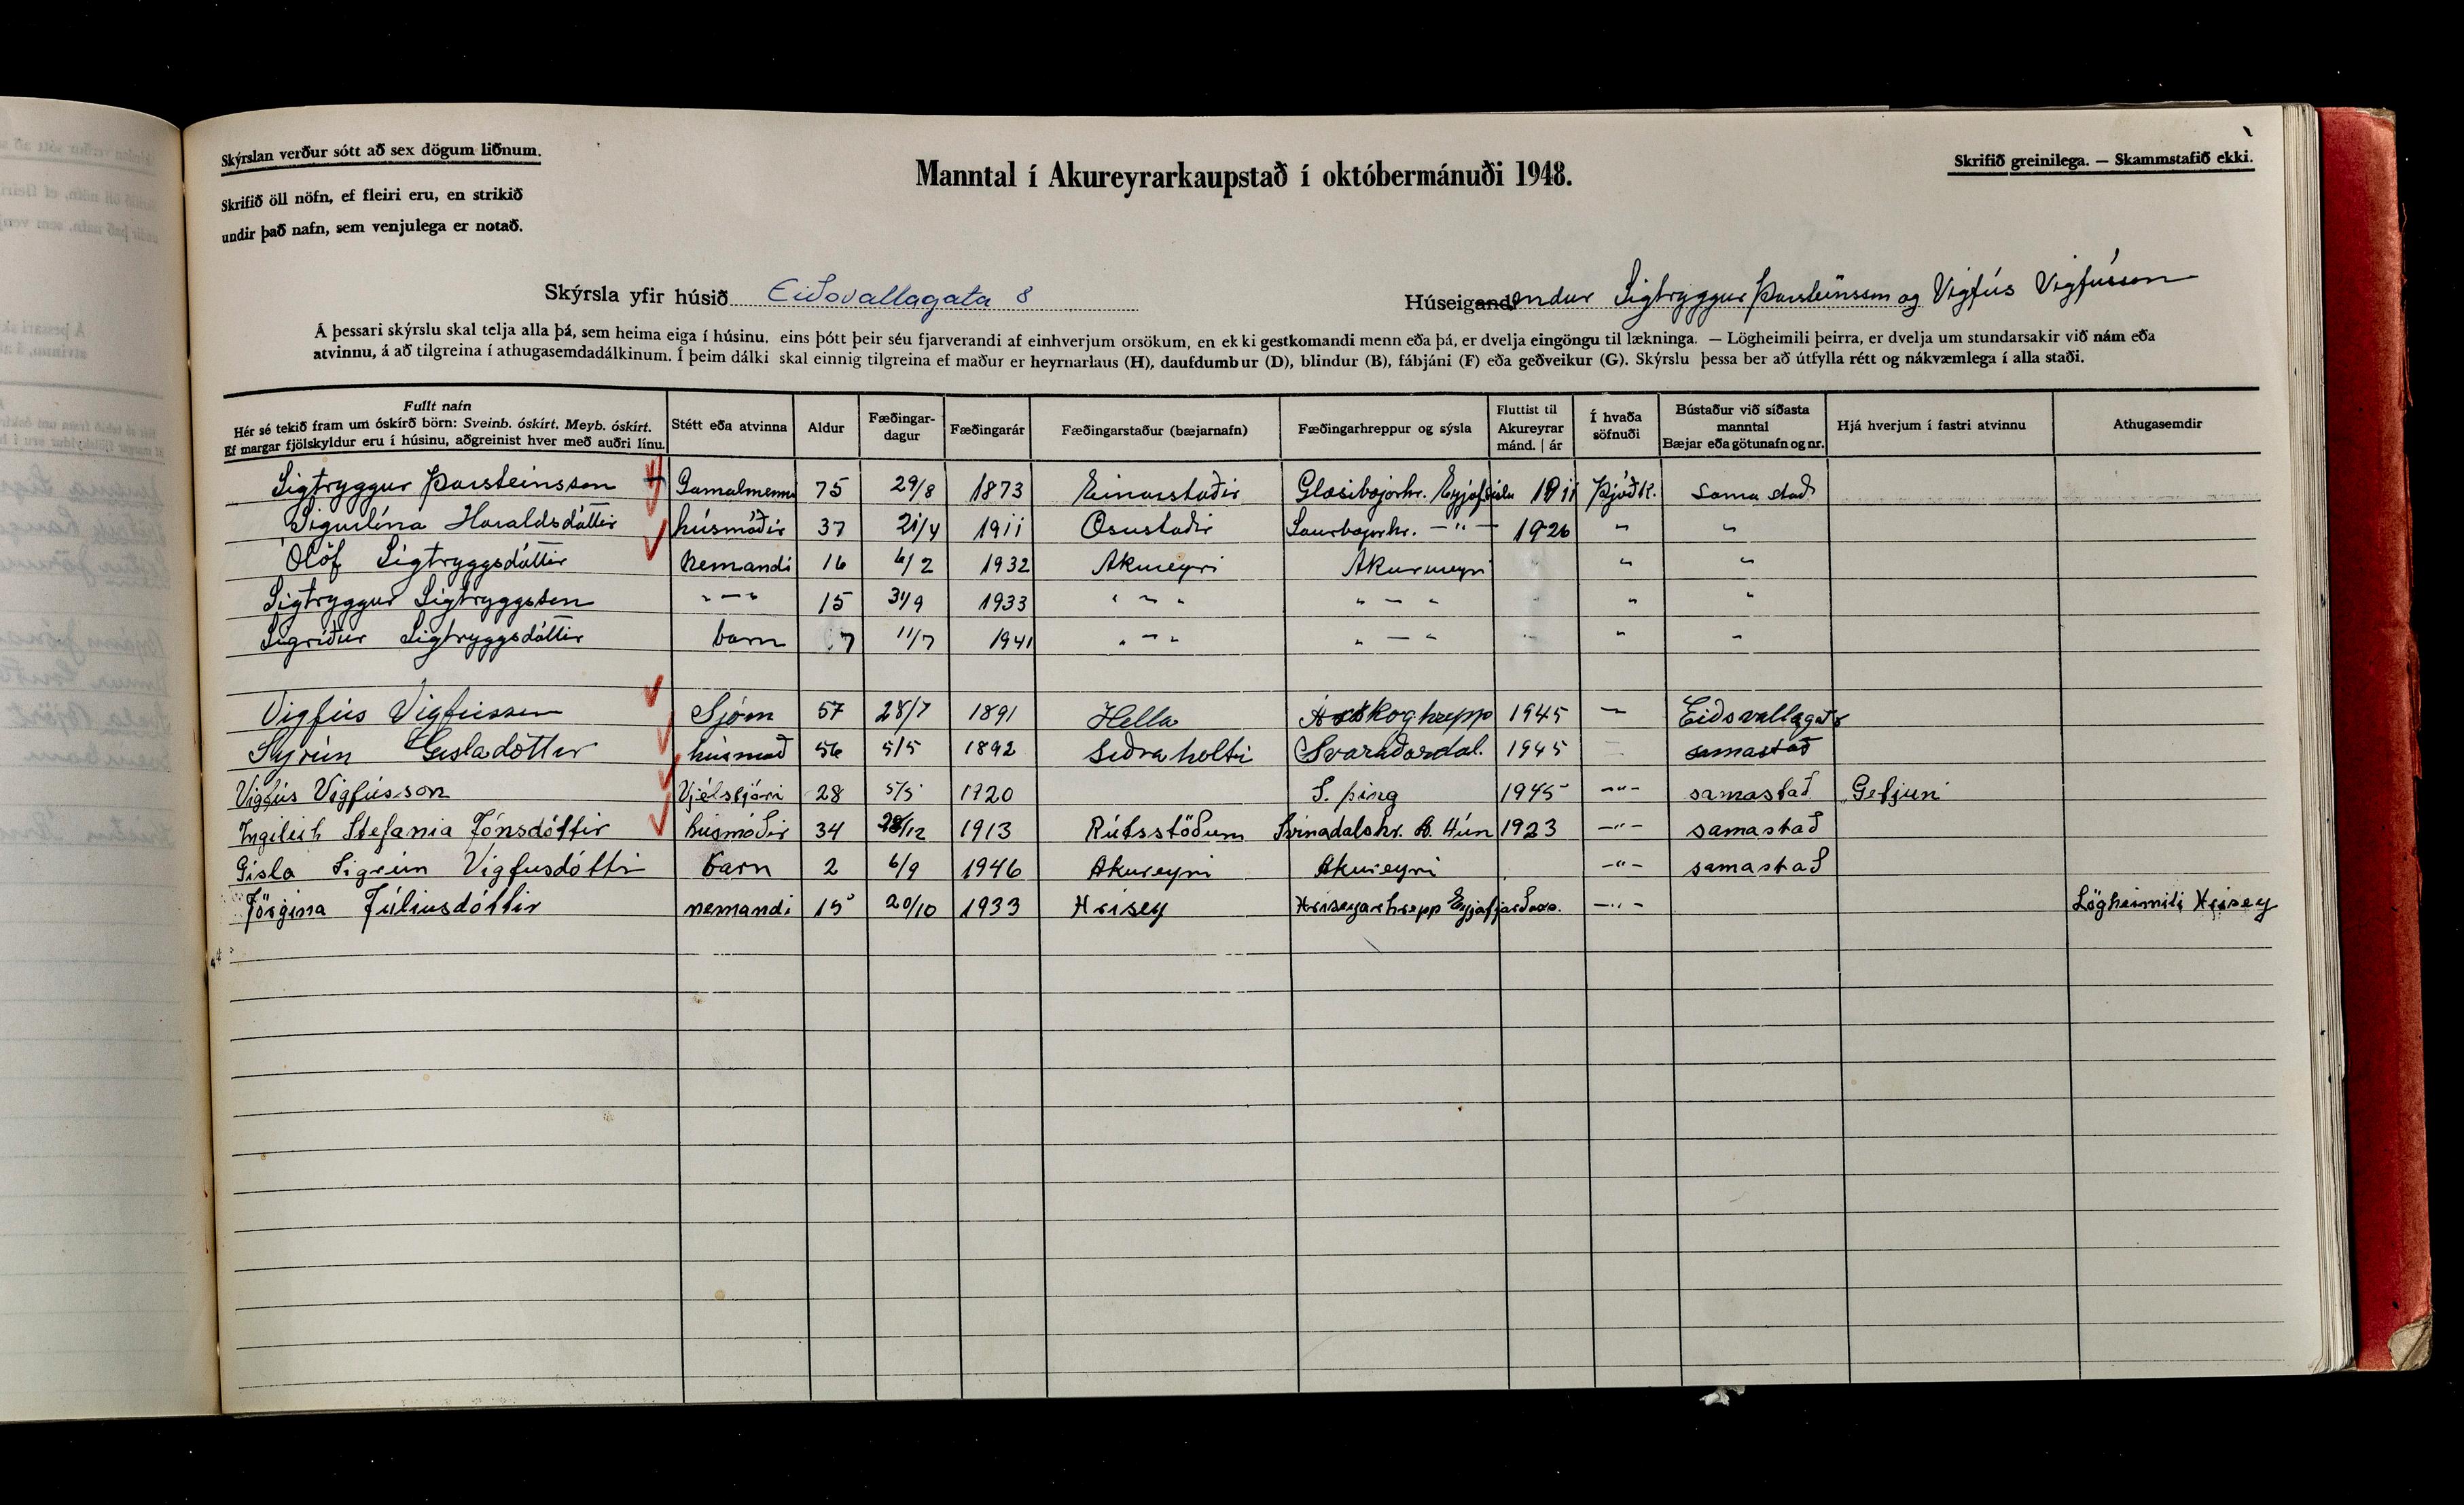 Skýrslan verður sótt að sex dögum liðnum.
Skrifið öll nöfn, ef fleiri eru, en strikið
undir það nafn, sem venjulega er notað.
Manntal í Akureyrarkaupstað í októbermánuði 1948.
Skrifið greinilega. — Skammstafið ekki.
Skýrsla yfir húsið Eiðsvallagata 8
Húseigandendur Sigtryggur Þorsteinsson og Vigfús Vigfússon
Á þessari skýrslu skal telja alla þá, sem heima eiga í húsinu, eins þótt þeir séu fjarverandi af einhverjum orsökum, en ekki gestkomandi menn eða þá, er dvelja eingöngu til lækninga. — Lögheimili þeirra, er dvelja um stundarsakir við nám eða
atvinnu, á að tilgreina í athugasemdadálkinum. Í þeim dálki skal einnig tilgreina ef maður er heyrnarlaus (H), daufdumbur (D), blindur (B), fábjáni (F) eða geðveikur (G). Skýrslu þessa ber að útfylla rétt og nákvæmlega í alla staði.
Fullt nafn
Hér sé tekið fram um óskírð börn: Sveinb. óskírt. Meyb. óskírt.
Ef margar fjölskyldur eru í húsinu, aðgreinist hver með auðri línu.
Stétt eða atvinna
Aldur
Fæðingar-
dagur
Fæðingarár
Fæðingarstaður (bæjarnafn)
Fæðingarhreppur og sýsla
Fluttist til
Akureyrar
mánd. | ár
Í hvaða
söfnuði
Bústaður við síðasta
manntal
Bæjar eða götunafn og nr.
Hjá hverjum í fastri atvinnu
Athugasemdir
Sigtryggur Þorsteinsson Gamalmenni 75 29/8 1873 Einarstaðir Glæsibæjarhr. 1911 Þjóðk. Sama stað
Sigurlína Haraldsdóttir húsmóðir 37 21/4 1911 Saurbæjarhr. —"— 1926 " "
Ólöf Sigtryggsdóttir Nemandi 16 6/2 1932 Akureyri Akureyri " "
Sigtryggur Sigtryggsson "—" 15 1933 "—" "—" " "
Sigríður Sigtryggsdóttir barn 7 11/7 1941 "—" "—" " "
Vigfús Vigfússon Sjóm 57 28/7 1891 Hella Árskoghrepp 1945 — Eiðsvallagat 8
Sigrún Gísladóttir húsmóð 56 5/5 1892 Svarfaðardal. 1945 samastað
Vigfús Vigfússon Vjélstjóri 28 5/5 1920 S. þing 1945 —"— samastað Gefjuni
Ingileif Stefania Jónsdóttir húsmóðir 34 28/12 1913 Rútsstöðum Svínadalshr. A. Hún 1923 —"— samastað
Gísla Sigrún Vigfusdóttir barn 2 6/9 1946 Akureyri Akureyri —"— samastað
Jörgina Júliusdóttir nemandi 15 20/10 1933 Hrísey Hríseyarhrepp —"— Lögheimili Hrísey